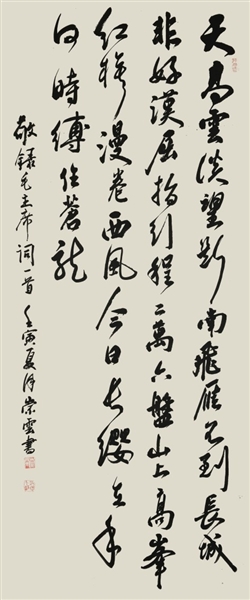 天高雲淡望斷南飛雁不到長城
非好漢屈指行程二萬六盤山上高峯
紅旗漫卷西風今日長纓在手
何時縛住蒼龍
敬錄毛主席詞一首 壬寅夏月崇雲書